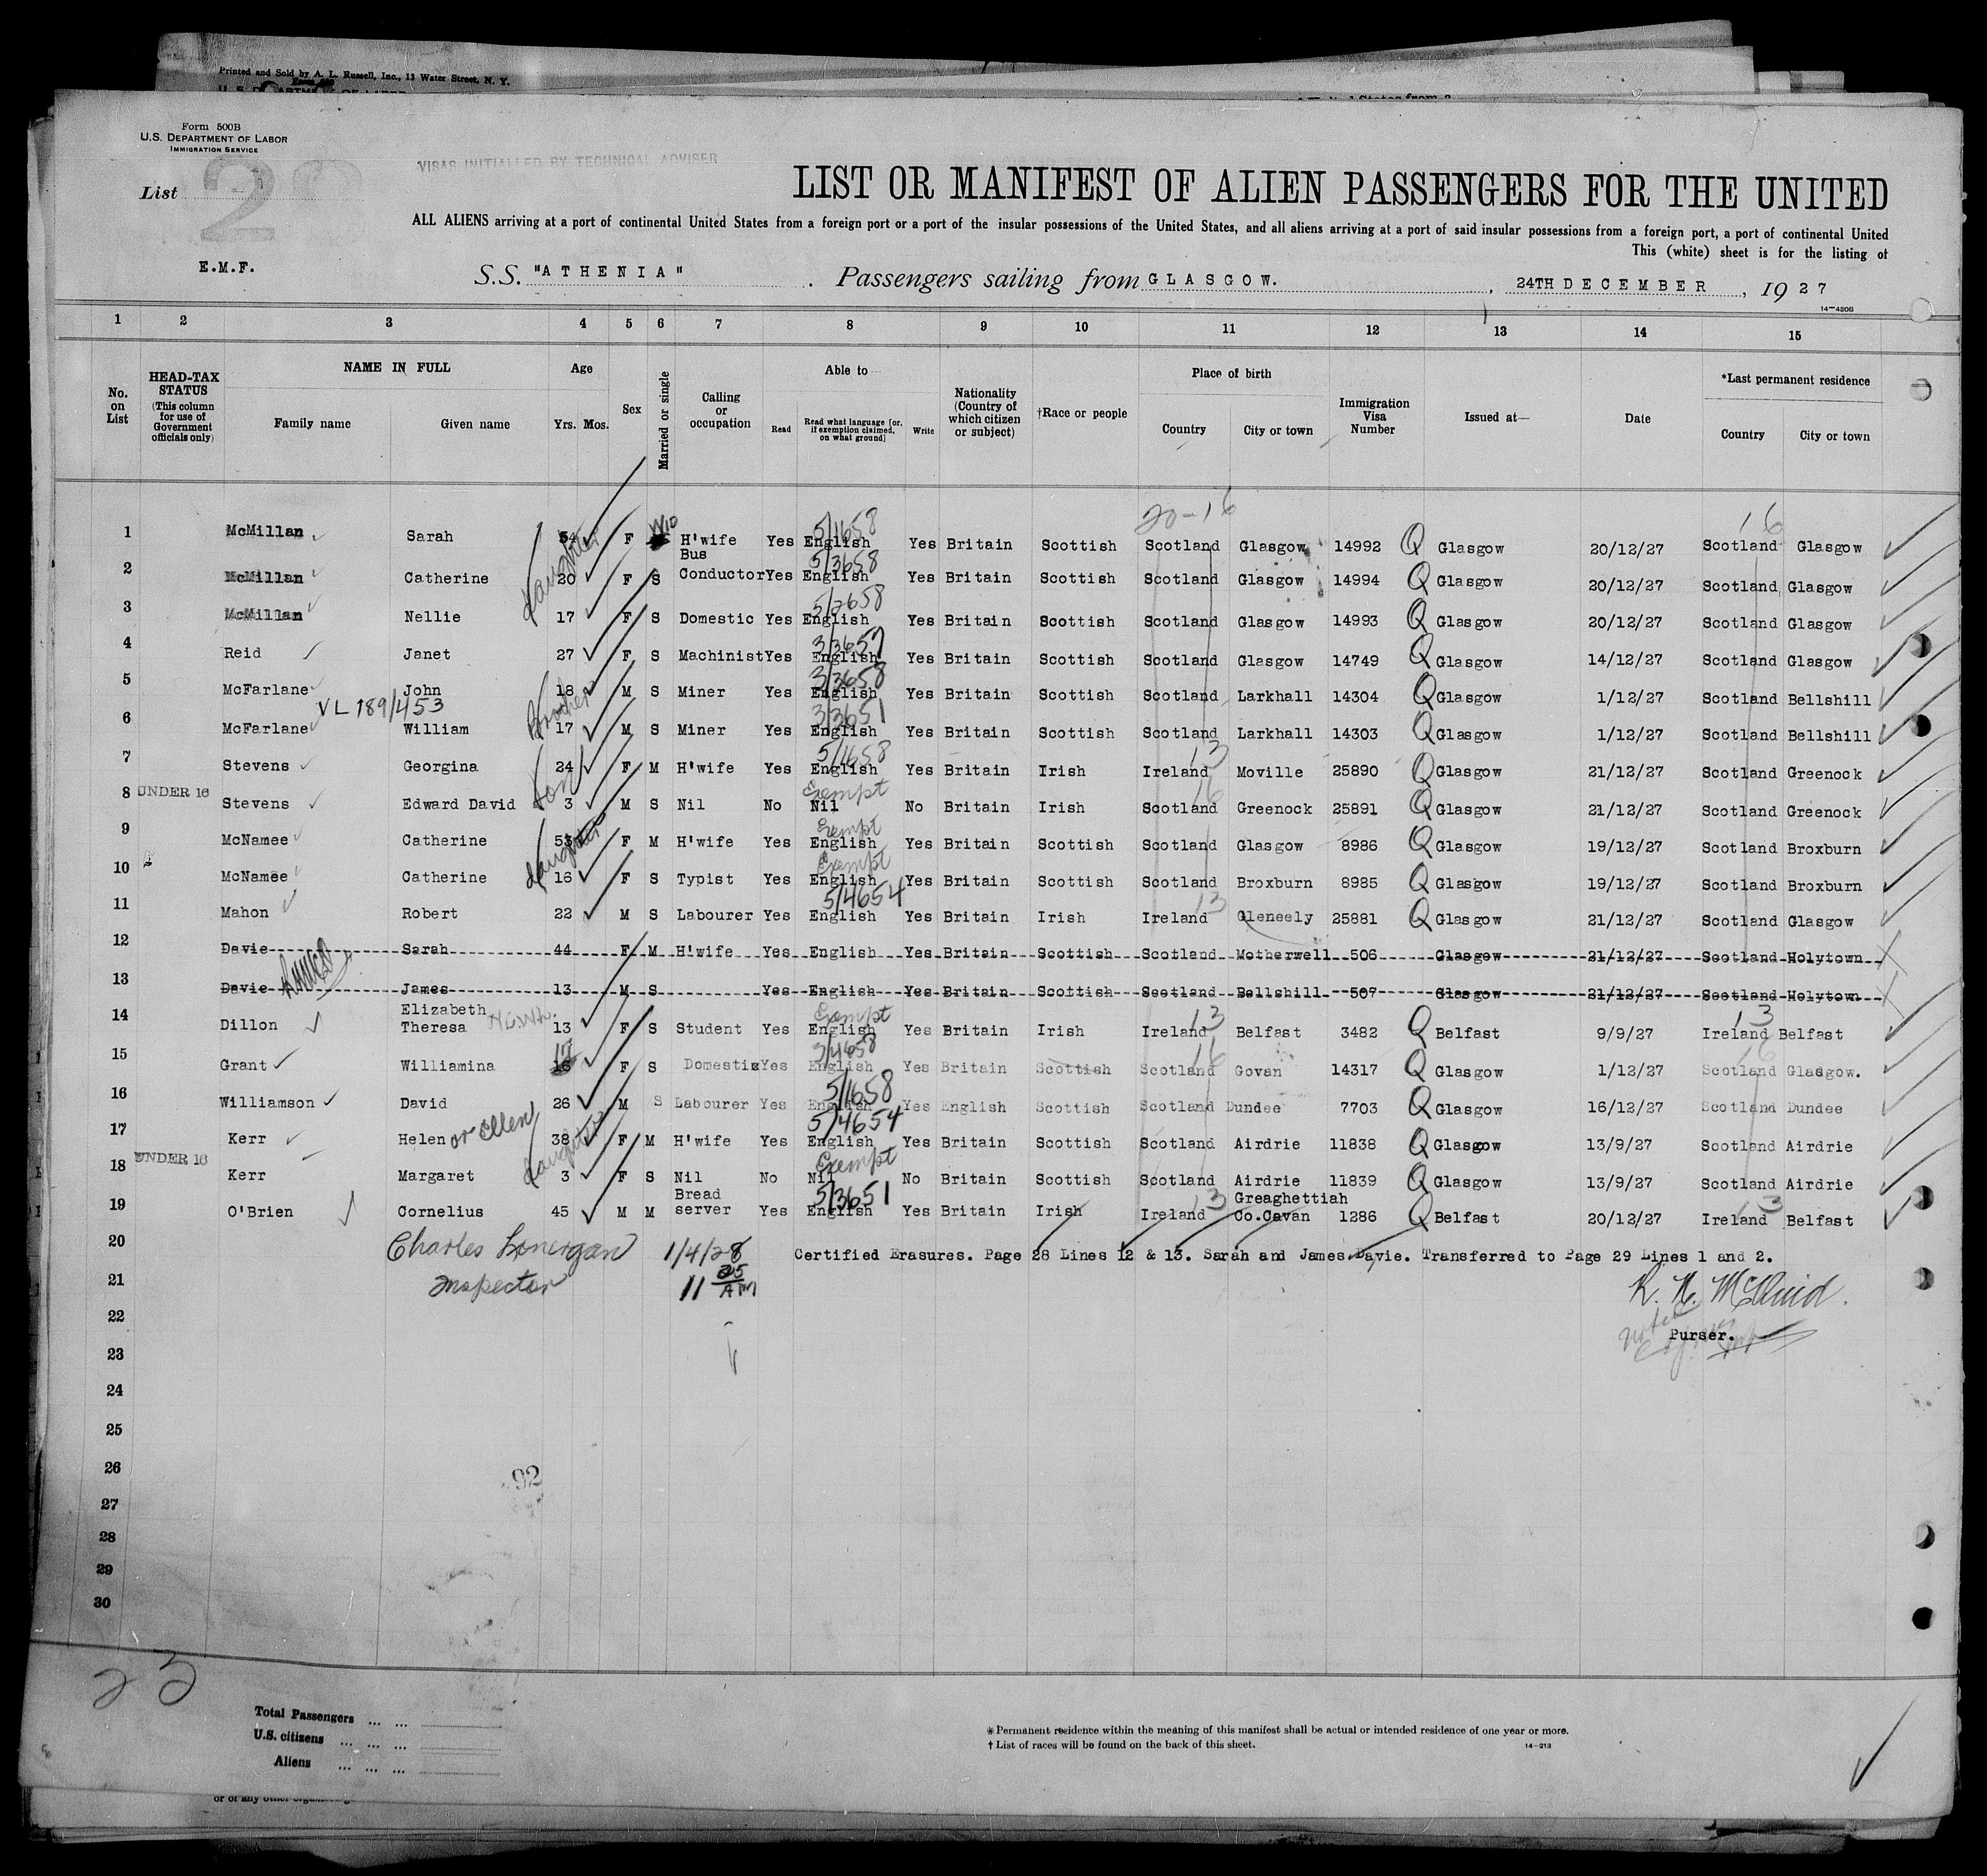 Printed and Sold by A. L. Russell, Inc., 13 Water Street, N. Y.
Form 500B
U.S. DEPARTMENT OF LABOR
IMMIGRATION SERVICE
VISAS INITIALLED BY TECHNICAL ADVISER
List
LIST OR MANIFEST OF ALIEN PASSENGERS FOR THE UNITED
ALL ALIENS arriving at a port of continental United States from a foreign port or a port of the insular possessions of the United States, and all aliens arriving at a port of said insular possessions from a foreign port, a port of continental United
This (white) sheet is for the listing of
E.M.F.
S.S. "ATHENIA" Passengers sailing from GLASGOW. , 24TH DECEMBER , 1927
14—4806
1 2 3 4 5 6 7 8 9 10 11 12 13 14 15
No. on List
HEAD-TAX STATUS (This column for use of Government officials only)
NAME IN FULL Family name Given name
Age Yrs. Mos.
Sex
Married or single
Calling or occupation
Able to Read Read what language [or, if exemption claimed, on what ground] Write
Nationality (Country of which citizen or subject)
†Race or people
Place of birth Country City or town
Immigration Visa Number
Issued at—
Date
*Last permanent residence Country City or town
20-16 16
1 McMillan Sarah 54 F Wid H'wife Yes English 5/1658 Yes Britain Scottish Scotland Glasgow 14992 Q Glasgow 20/12/27 Scotland Glasgow
2 McMillan Catherine daughter 20 F S Bus Conductor Yes English 5/3658 Yes Britain Scottish Scotland Glasgow 14994 Q Glasgow 20/12/27 Scotland Glasgow
3 McMillan Nellie 17 F S Domestic Yes English 5/2658 Yes Britain Scottish Scotland Glasgow 14993 Q Glasgow 20/12/27 Scotland Glasgow
4 Reid Janet 27 F S Machinist Yes English 3/3657 Yes Britain Scottish Scotland Glasgow 14749 Q Glasgow 14/12/27 Scotland Glasgow
5 McFarlane John 18 M S Miner Yes English 3/3658 Yes Britain Scottish Scotland Larkhall 14304 Q Glasgow 1/12/27 Scotland Bellshill
VL 189/453
6 McFarlane William Brother 17 M S Miner Yes English 3/3651 Yes Britain Scottish Scotland Larkhall 14303 Q Glasgow 1/12/27 Scotland Bellshill
7 Stevens Georgina 24 F M H'wife Yes English 5/1658 Yes Britain Irish Ireland 13 Moville 25890 Q Glasgow 21/12/27 Scotland Greenock
8 UNDER 16 Stevens Edward David son 3 M S Nil No Nil Exempt No Britain Irish Scotland 16 Greenock 25891 Q Glasgow 21/12/27 Scotland Greenock
9 McNamee Catherine 53 F M H'wife Yes English Exempt Yes Britain Scottish Scotland Glasgow 8986 Q Glasgow 19/12/27 Scotland Broxburn
10 McNamee Catherine daughter 16 F S Typist Yes English Exempt Yes Britain Scottish Scotland Broxburn 8985 Q Glasgow 19/12/27 Scotland Broxburn
11 Mahon Robert 22 M S Labourer Yes English 5/4654 Yes Britain Irish Ireland 13 Gleneely 25881 Q Glasgow 21/12/27 Scotland Glasgow
12 Davie Sarah 44 F M H'wife Yes English Yes Britain Scottish Scotland Motherwell 506 Glasgow 21/12/27 Scotland Holytown
13 Davie James 13 M S Yes English Yes Britain Scottish Scotland Bellshill 507 Glasgow 21/12/27 Scotland Holytown
14 Dillon Elizabeth Theresa 13 F S Student Yes English Exempt Yes Britain Irish Ireland 13 Belfast 3482 Q Belfast 9/9/27 Ireland 13 Belfast
15 Grant Williamina 17 16 F S Domestic Yes English 3/4658 Yes Britain Scottish Scotland 16 Govan 14317 Q Glasgow 1/12/27 Scotland 16 Glasgow.
16 Williamson David 26 M S Labourer Yes English 5/1658 Yes English Scottish Scotland Dundee 7703 Q Glasgow 16/12/27 Scotland Dundee
17 Kerr Helen or Ellen 38 F M H'wife Yes English 5/4654 Yes Britain Scottish Scotland Airdrie 11838 Q Glasgow 13/9/27 Scotland Airdrie
18 UNDER 16 Kerr Margaret daughter 3 F S Nil No Nil Exempt No Britain Scottish Scotland Airdrie 11839 Q Glasgow 13/9/27 Scotland Airdrie
19 O'Brien Cornelius 45 M M Bread server Yes English 5/3651 Yes Britain Irish Ireland 13 Greaghettiah Co.Cavan 1286 Q Belfast 20/12/27 Ireland 13 Belfast
20 Charles Lonergan 1/4/28 Certified Erasures. Page 28 Lines 12 & 13. Sarah and James Davie. Transferred to Page 29 Lines 1 and 2.
21 Inspector 11 25 AM
22
Purser.
23
24
25
26
92
27
28
29
30
Total Passengers ... ...
U.S. citizens ... ... ...
Aliens ... ... ...
*Permanent residence within the meaning of this manifest shall be actual or intended residence of one year or more.
†List of races will be found on the back of this sheet.
14—213